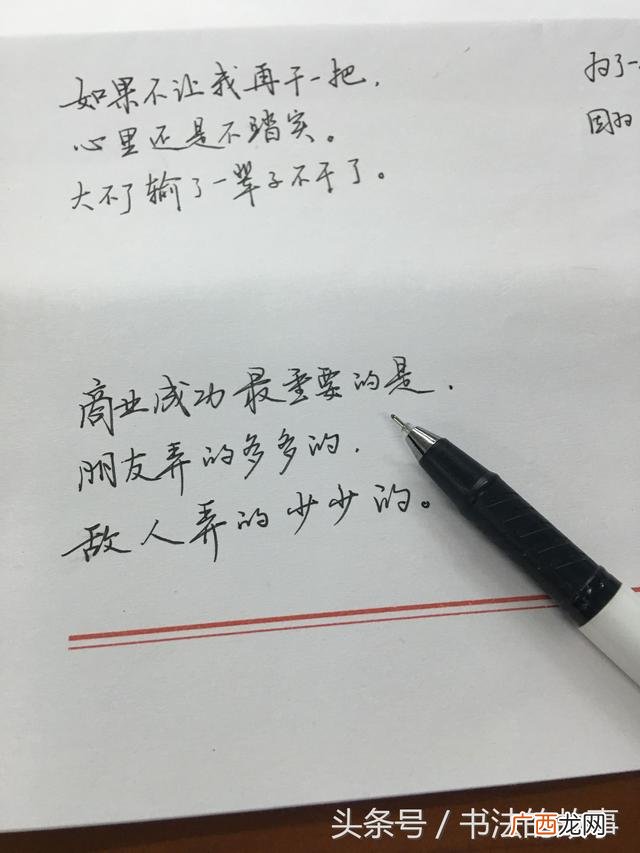 如果不让我再干一把，
心里还是不踏实。
大不了输了一辈子不干了。
为了一
因为
商业成功最重要的是，
朋友弄的多多的，
敌人弄的少少的。
头条号／书法的故事
广西龙网